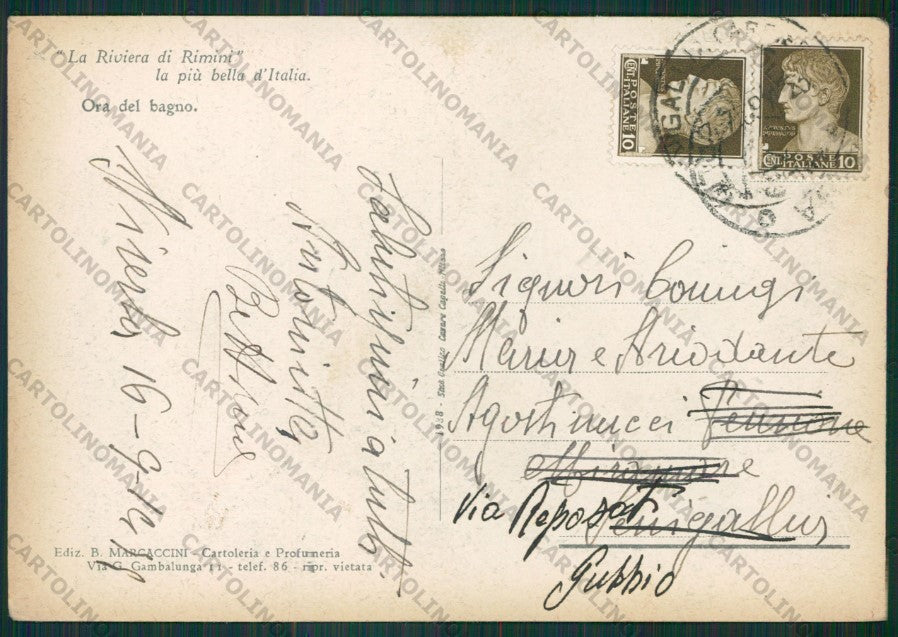 "La Riviera di Rimini"
la più bella d'Italia.
Ora del bagno.
Salutissimi a tutti
Antonietta
16-9-
1938 - Stab. Grafico Cesare Capello - Milano
POSTE ITALIANE
CENT. 10
POSTE ITALIANE
CENT. 10
Signori Coniugi
Maria e Ariodante
Agostinucci
Senigallia
Via Reposati
Gubbio
Ediz. B. MARCACCINI - Cartoleria e Profumeria
Via G. Gambalunga 11 - telef. 86 - ripr. vietata
CARTOLINOMANIA